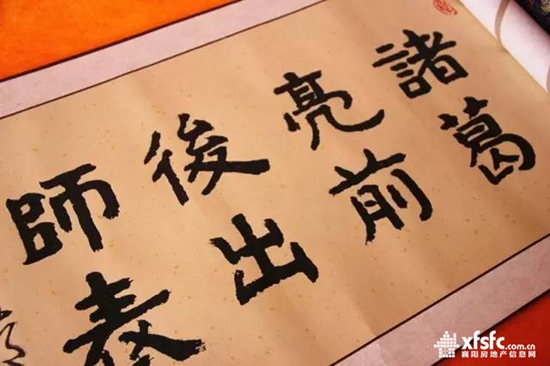 諸葛
亮前
後出
師表
xfsfc.com.cn
襄阳房地产信息网